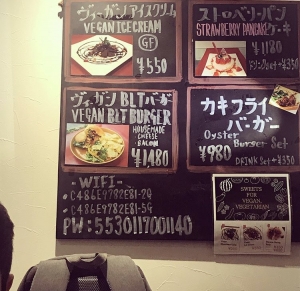 ヴィーガンアイスクリーム
VEGAN ICE CREAM
GF
¥550
ストロベリーパンケーキ
STRAWBERRY PANCAKE
¥1180
ドリンクset+¥350
ヴィーガンBLTバーガー
VEGAN BLT BURGER
HOUSEMADE
CHEESE
&
BACON
¥1480
カキフライ
バーガー
Oyster
Burger Set
¥980
DRINK Set+¥350
-WIFI-
C486E9782E81-2G
C486E9782E81-5G
PW:5530117001140
SWEETS
FOR
VEGAN,
VEGETARIAN